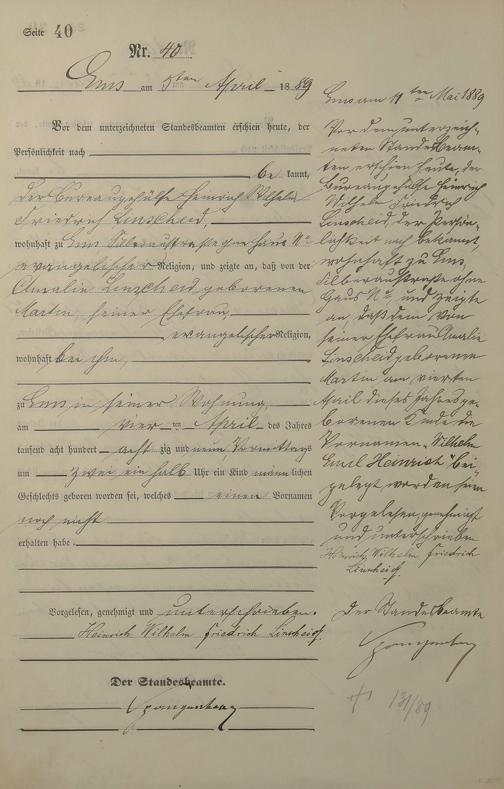 Seite 40
Nr. 40
Ems am 5ten April 1889
Vor dem unterzeichneten Standesbeamten erschien heute, der
Persönlichkeit nach
be kannt,
der Bureaugehülfe Heinrich Wilhelm
Friedrich Linscheid,
wohnhaft zu Ems Silberaustraße ohne Haus No
evangelischer Religion, und zeigte an, daß von der
Amalie Linscheid geborenen
Martin, seiner Ehefrau,
evangelischer Religion,
wohnhaft bei ihm,
zu Ems, in seiner Wohnung,
am vier ten April des Jahres
tausend acht hundert acht zig und neun Vormittags
um zwei ein halb Uhr ein Kind männ lichen
Geschlechts geboren worden sei, welches einen Vornamen
noch nicht
erhalten habe.
Vorgelesen, genehmigt und unterschrieben.
Heinrich Wilhelm Friedrich Linscheid.
Der Standesbeamte.
Ems am 11ten Mai 1889
Vor dem unterzeich-
neten Standesbeam-
ten erschien heute, der
Bureaugehülfe Heinrich
Wilhelm Friedrich
Linscheid, der Persön-
lichkeit nach bekannt,
wohnhaft zu Ems,
Silberaustraße ohne
Haus No, und zeigte
an, daß dem von
seiner Ehefrau Amalie
Linscheid geborenen
Martin am vierten
April dieses Jahres ge-
borenen Kinde die
Vornamen "Wilhelm
Emil Heinrich" bei-
gelegt worden seien
Vorgelesen, genehmigt
und unterschrieben
Heinrich Wilhelm Friedrich
Linscheid.
Der Standesbeamte
131/89